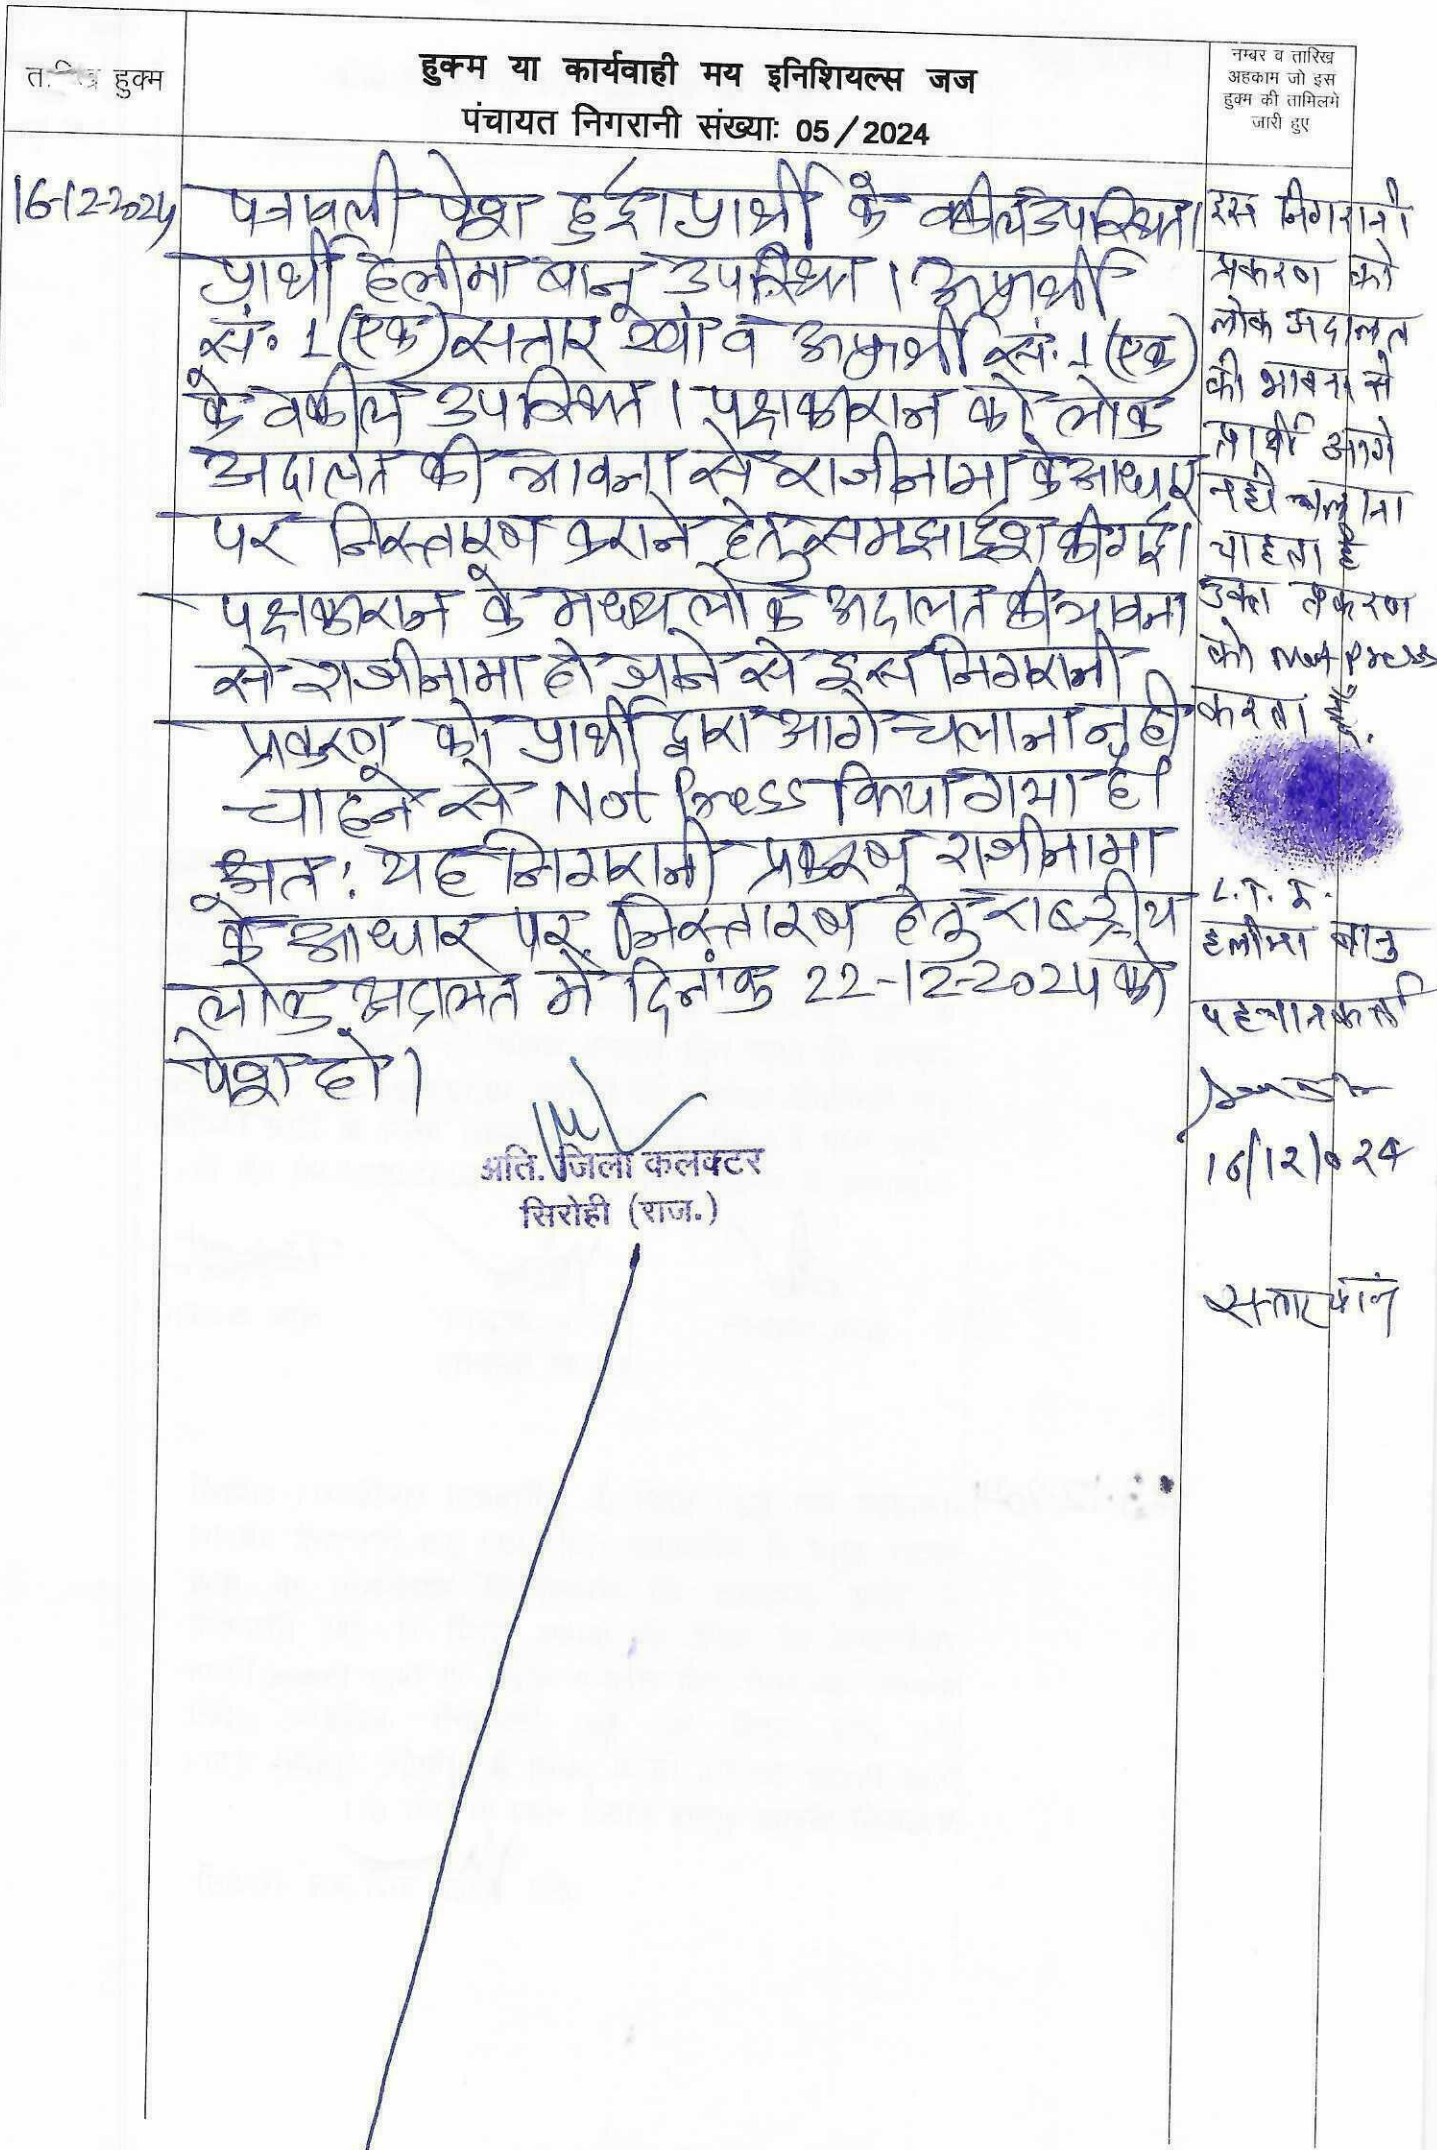 हुक्म
हुक्म या कार्यवाही मय इनिशियल्स जज
पंचायत निगरानी संख्याः 05/2024
नम्बर व तारिख
अहकाम जो इस
हुक्म की तामिलमे
जारी हुए
16-12-2024
पत्रावली पेश हुई। प्रार्थी के वकील उपस्थित।
प्रार्थी हलीमा बानू उपस्थित। अप्रार्थी
सं. 1 (एक) सत्तार खां व अप्रार्थी सं. 1 (एक)
के वकील उपस्थित। पक्षकारान को लोक
अदालत की भावना से राजीनामा के आधार
पर निस्तारण कराने हेतु समझाईश की गई।
पक्षकारान के मध्य लोक अदालत की भावना
से राजीनामा हो जाने से इस निगरानी
प्रकरण को प्रार्थी द्वारा आगे चलाना नही
चाहने से Not Press किया गया है।
अतः यह निगरानी प्रकरण राजीनामा
के आधार पर निस्तारण हेतु राष्ट्रीय
लोक अदालत में दिनांक 22-12-2024 को
पेश हो।
अति. जिला कलक्टर
सिरोही (राज.)
इस निगरानी
प्रकरण को
लोक अदालत
की भावना से
प्रार्थी आगे
नही चलाना
चाहता है
उक्त प्रकरण
को Not Press
करता हूँ.
L.T.I.
हलीमा बानु
पहचानकर्ता
16/12/024
सतारखान